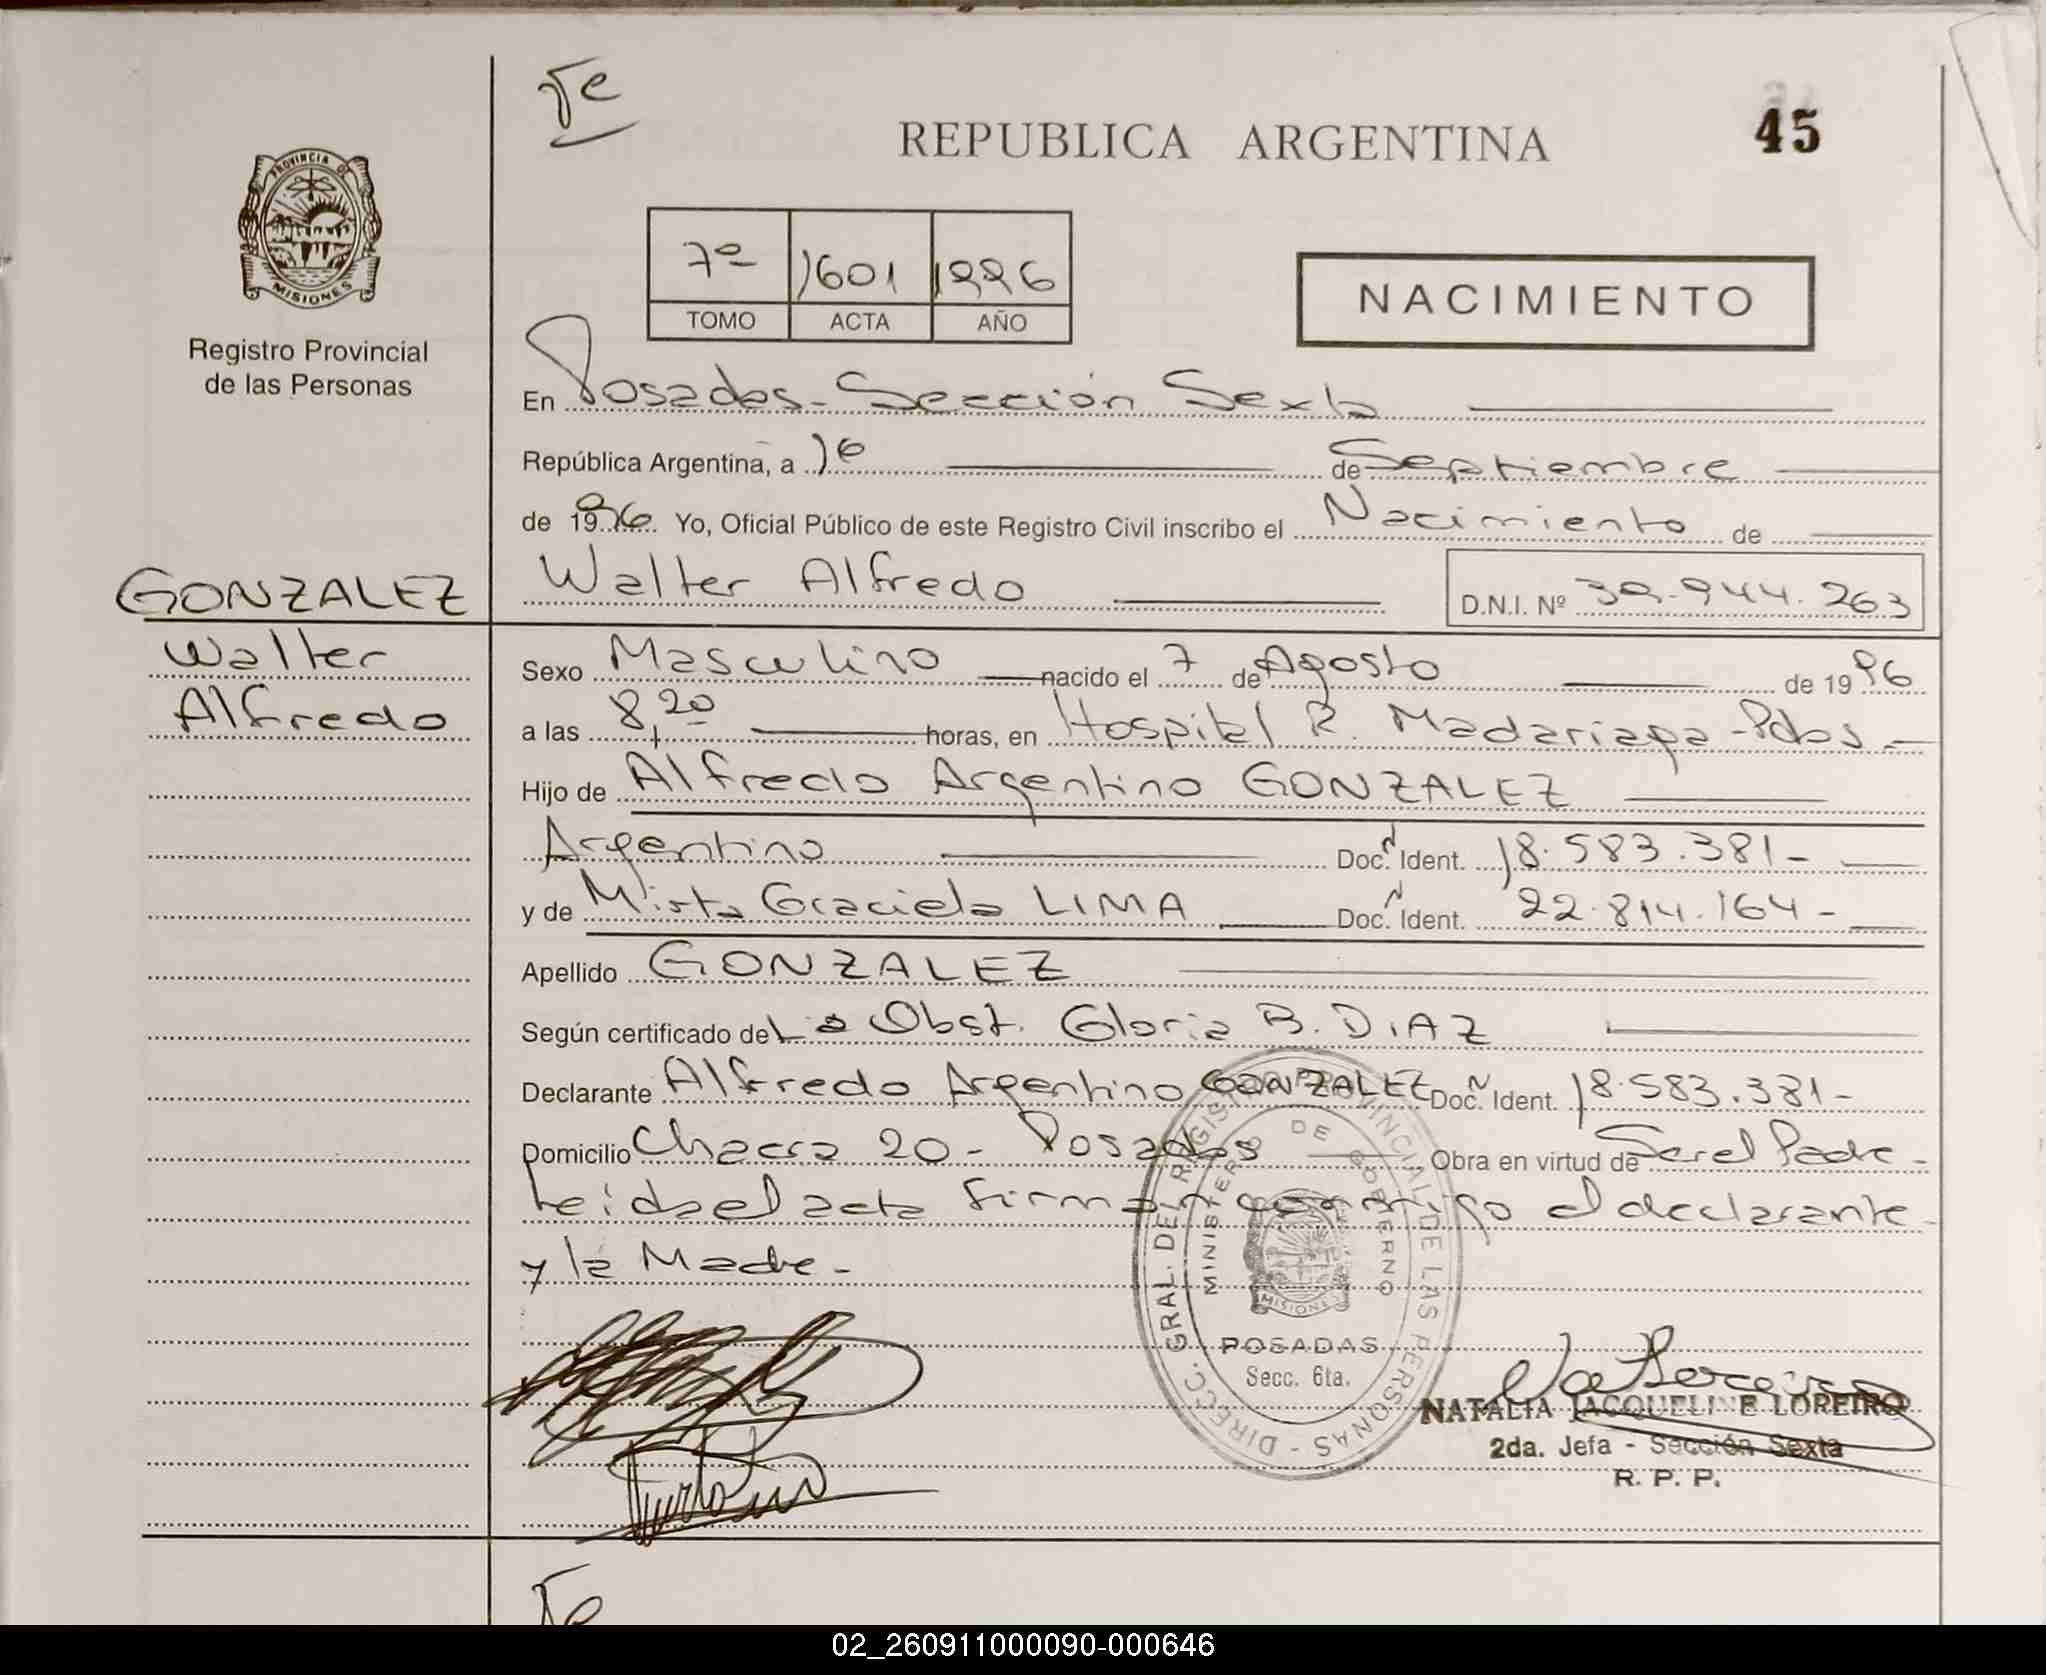 Te
REPUBLICA ARGENTINA
45
PROVINCIA DE
MISIONES
Registro Provincial
de las Personas
7º 1601 1996
TOMO ACTA AÑO
NACIMIENTO
En Posadas - Sección Sexta
República Argentina, a 16 de Septiembre
de 1996 Yo, Oficial Público de este Registro Civil inscribo el Nacimiento de
GONZALEZ
Walter
Alfredo
Walter Alfredo
D.N.I. Nº 39.944.263
Sexo Masculino nacido el 7 de Agosto de 1996
a las 8,20 horas, en Hospital R. Madariaga - Pdas -
Hijo de Alfredo Argentino GONZALEZ
Argentino Doc. N Ident. 18.583.381-
y de Mirta Graciela LIMA Doc. N Ident. 22.814.164-
Apellido GONZALEZ
Según certificado de La Obst. Gloria B. DIAZ
Declarante Alfredo Argentino GONZALEZ Doc. N Ident. 18.583.381-
Domicilio Chacra 20 - Posadas Obra en virtud de Ser el Padre -
Leida el acta firman conmigo el declarante
y la Madre -
DIRECC. GRAL. DEL REGISTRO PROVINCIAL DE LAS PERSONAS -
MINISTERIO DE GOBIERNO
MISIONES
POSADAS
Secc. 6ta.
NATALIA JACQUELINE LOREIRO
2da. Jefa - Sección Sexta
R. P. P.
02_260911000090-000646